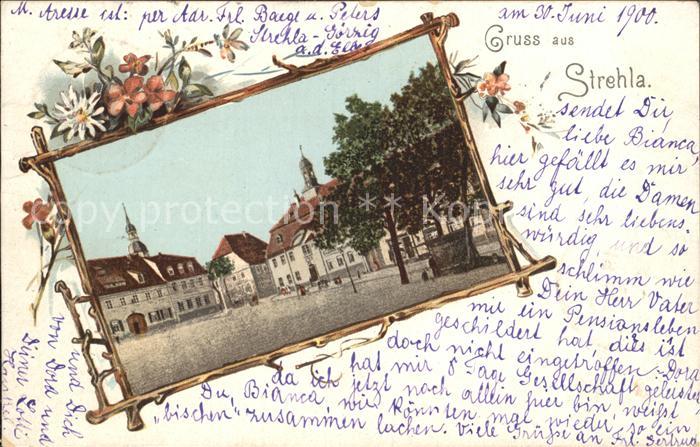 M. Aresse ist: per Adr. Frl. Baege u. Peters
Strehla-Görzig
a.d. Elbe
am 30. Juni 1900.
Gruss aus
Strehla.
sendet Dir,
liebe Bianca,
hier gefällt es mir
sehr gut, die Damen
sind sehr liebens-
würdig, und so
schlimm wie
Dein Herr Vater
mir ein Pensionsleben
geschildert hat, dies ist
doch nicht eingetroffen. Dora
hat mir 8 Tage Gesellschaft geleistet
da ich jetzt noch allein hier bin, weißt
Du, Bianca wir könnten mal wieder so ein
"bischen" zusammen lachen. Viele Grüße an Frl. Gertrug
und Dich
von Dora und
Deiner Lotte
copyright protected